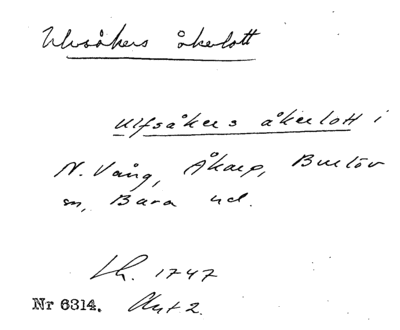 Ulvsåkers åkerlott
Ulfsåkers åkerlott i
N. Vång, Åkarp, Burlöv
sn, Bara hd.
Lh. 1747
Nr 6314. Akt 2.